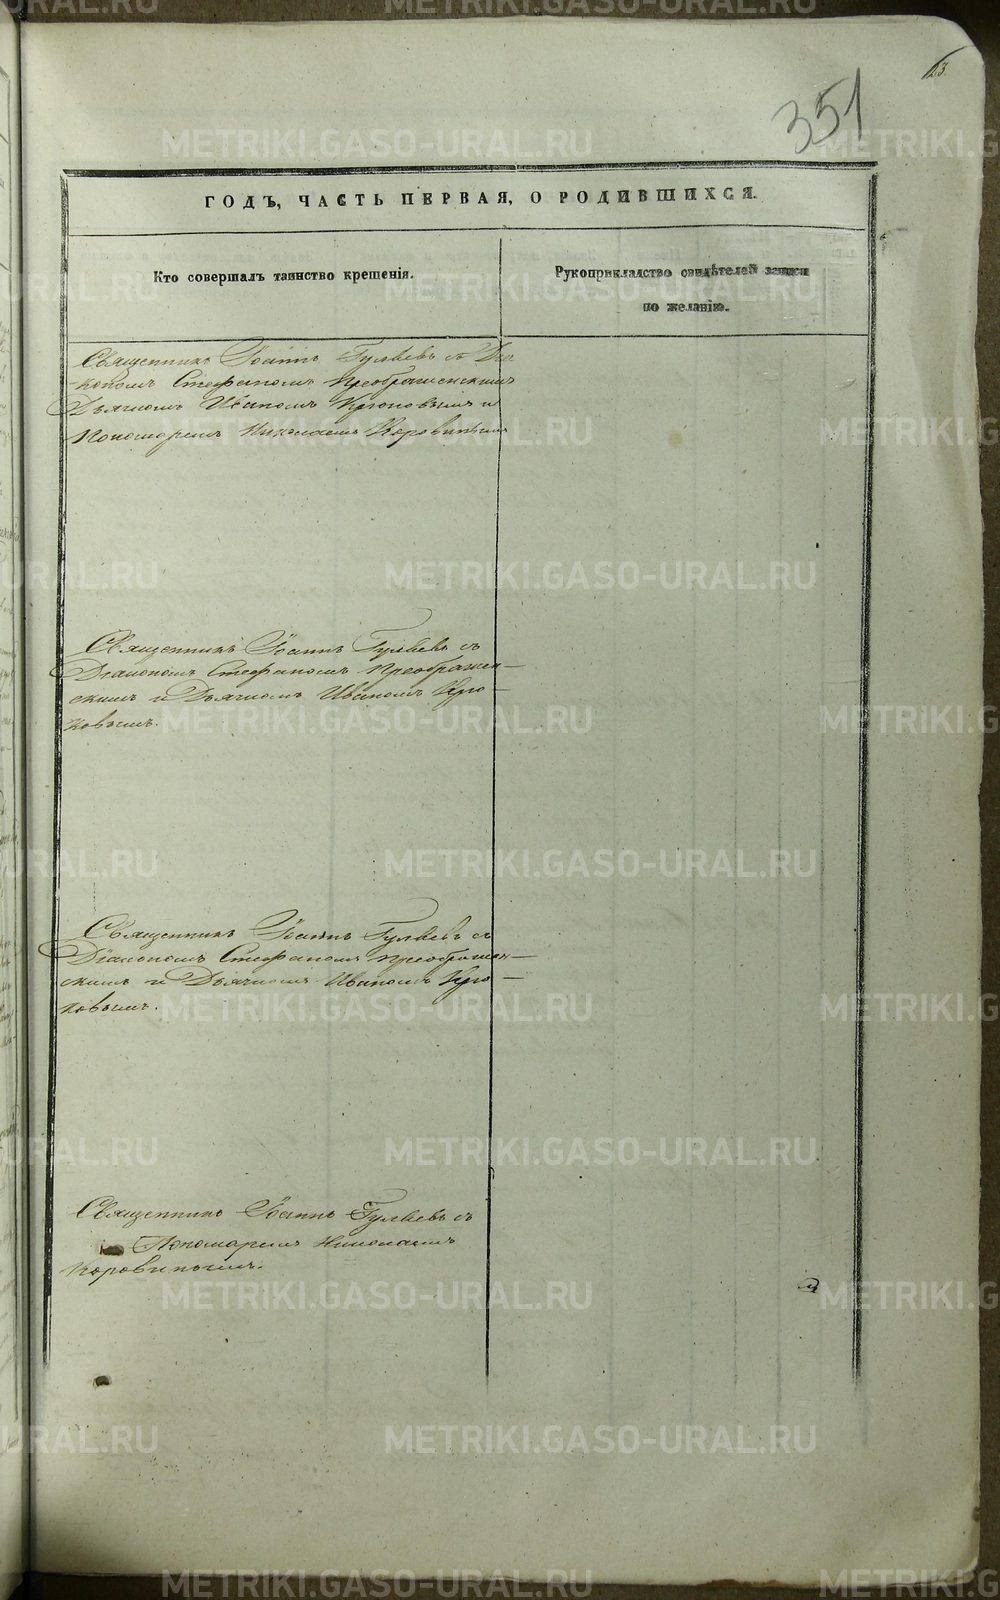 23.
351
ГОДЪ, ЧАСТЬ ПЕРВАЯ, О РОДИВШИХСЯ.
Кто совершалъ таинство крещенія.
Рукоприкладство свидѣтелей записи
по желанію.
Священникъ Іоаннъ Гуляевъ съ Діа
кономъ Стефаномъ Преображенскимъ
Дьячкомъ Иваномъ Крюковымъ и
Пономаремъ Николаемъ Коровинымъ
Священникъ Іоаннъ Гуляевъ съ
Діакономъ Стефаномъ Преображен-
скимъ и Дьячкомъ Иваномъ Крю-
ковымъ.
Священникъ Іоаннъ Гуляевъ съ
Діакономъ Стефаномъ Преображен-
скимъ и Дьячкомъ Иваномъ Крю-
ковымъ.
Священникъ Іоаннъ Гуляевъ съ
Пономаремъ Николаемъ
Коровинымъ.
METRIKI.GASO-URAL.RU